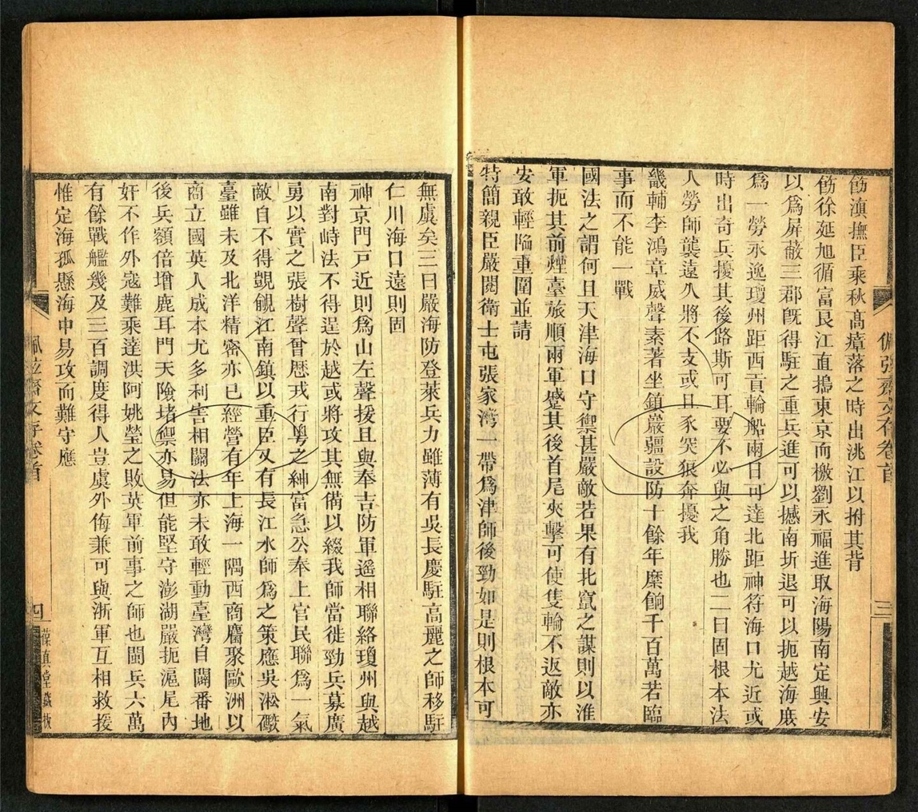 飭滇撫臣乘秋高瘴落之時出洮江以拊其背
飭徐延旭循富良江直搗東京而檄劉永福進取海陽南定興安
以爲屛蔽三郡旣得駐之重兵進可以撼南圻退可以扼越海庶
爲一勞永逸瓊州距西貢輪船兩日可達北距神符海口尤近或
時出奇兵擾其後路斯可耳要不必與之角勝也二曰固根本法
人勞師襲遠久將不支或且豕突狼奔擾我
畿輔李鴻章威聲素著坐鎭巖疆設防十餘年糜餉千百萬若臨
事而不能一戰
國法之謂何且天津海口守禦甚嚴敵若果有北竄之謀則以淮
軍扼其前煙臺旅順兩軍蹙其後首尾夾擊可使隻輪不返敵亦
安敢輕臨重圍並請
特簡親臣嚴閱衞士屯張家灣一帶爲津師後勁如是則根本可
佩弦齋文存卷首
三
無虞矣三曰嚴海防登萊兵力雖薄有吳長慶駐高麗之師移駐
仁川海口遠則固
神京門戸近則爲山左聲援且與奉吉防軍遥相聯絡瓊州與越
南對峙法不得逞於越或將攻其無備以綴我師當徙勁兵募廣
勇以實之張樹聲曾歷戎行粤之紳富急公奉上官民聯爲一氣
敵自不得覬覦江南鎭以重臣又有長江水師爲之策應吳淞礮
臺雖未及北洋精密亦已經營有年上海一隅西商麕聚歐洲以
商立國英人成本尤多利害相關法亦未敢輕動臺灣自開番地
後兵額倍增鹿耳門天險堵禦亦易但能堅守澎湖嚴扼滬尾内
奸不作外寇難乘達洪阿姚瑩之敗英軍前事之師也閩兵六萬
有餘戰艦幾及三百調度得人豈虞外侮兼可與浙軍互相救援
惟定海孤懸海中易攻而難守應
佩弦齋文存卷首
四
葆眞堂